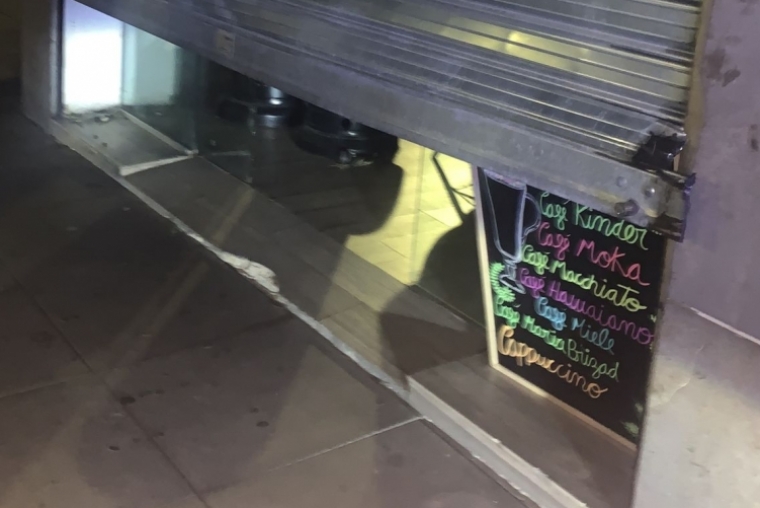 Café Kinder
Café Moka
Café Macchiato
Café Hawaiano
Café Miele
Café María Brizad
Cappuccino